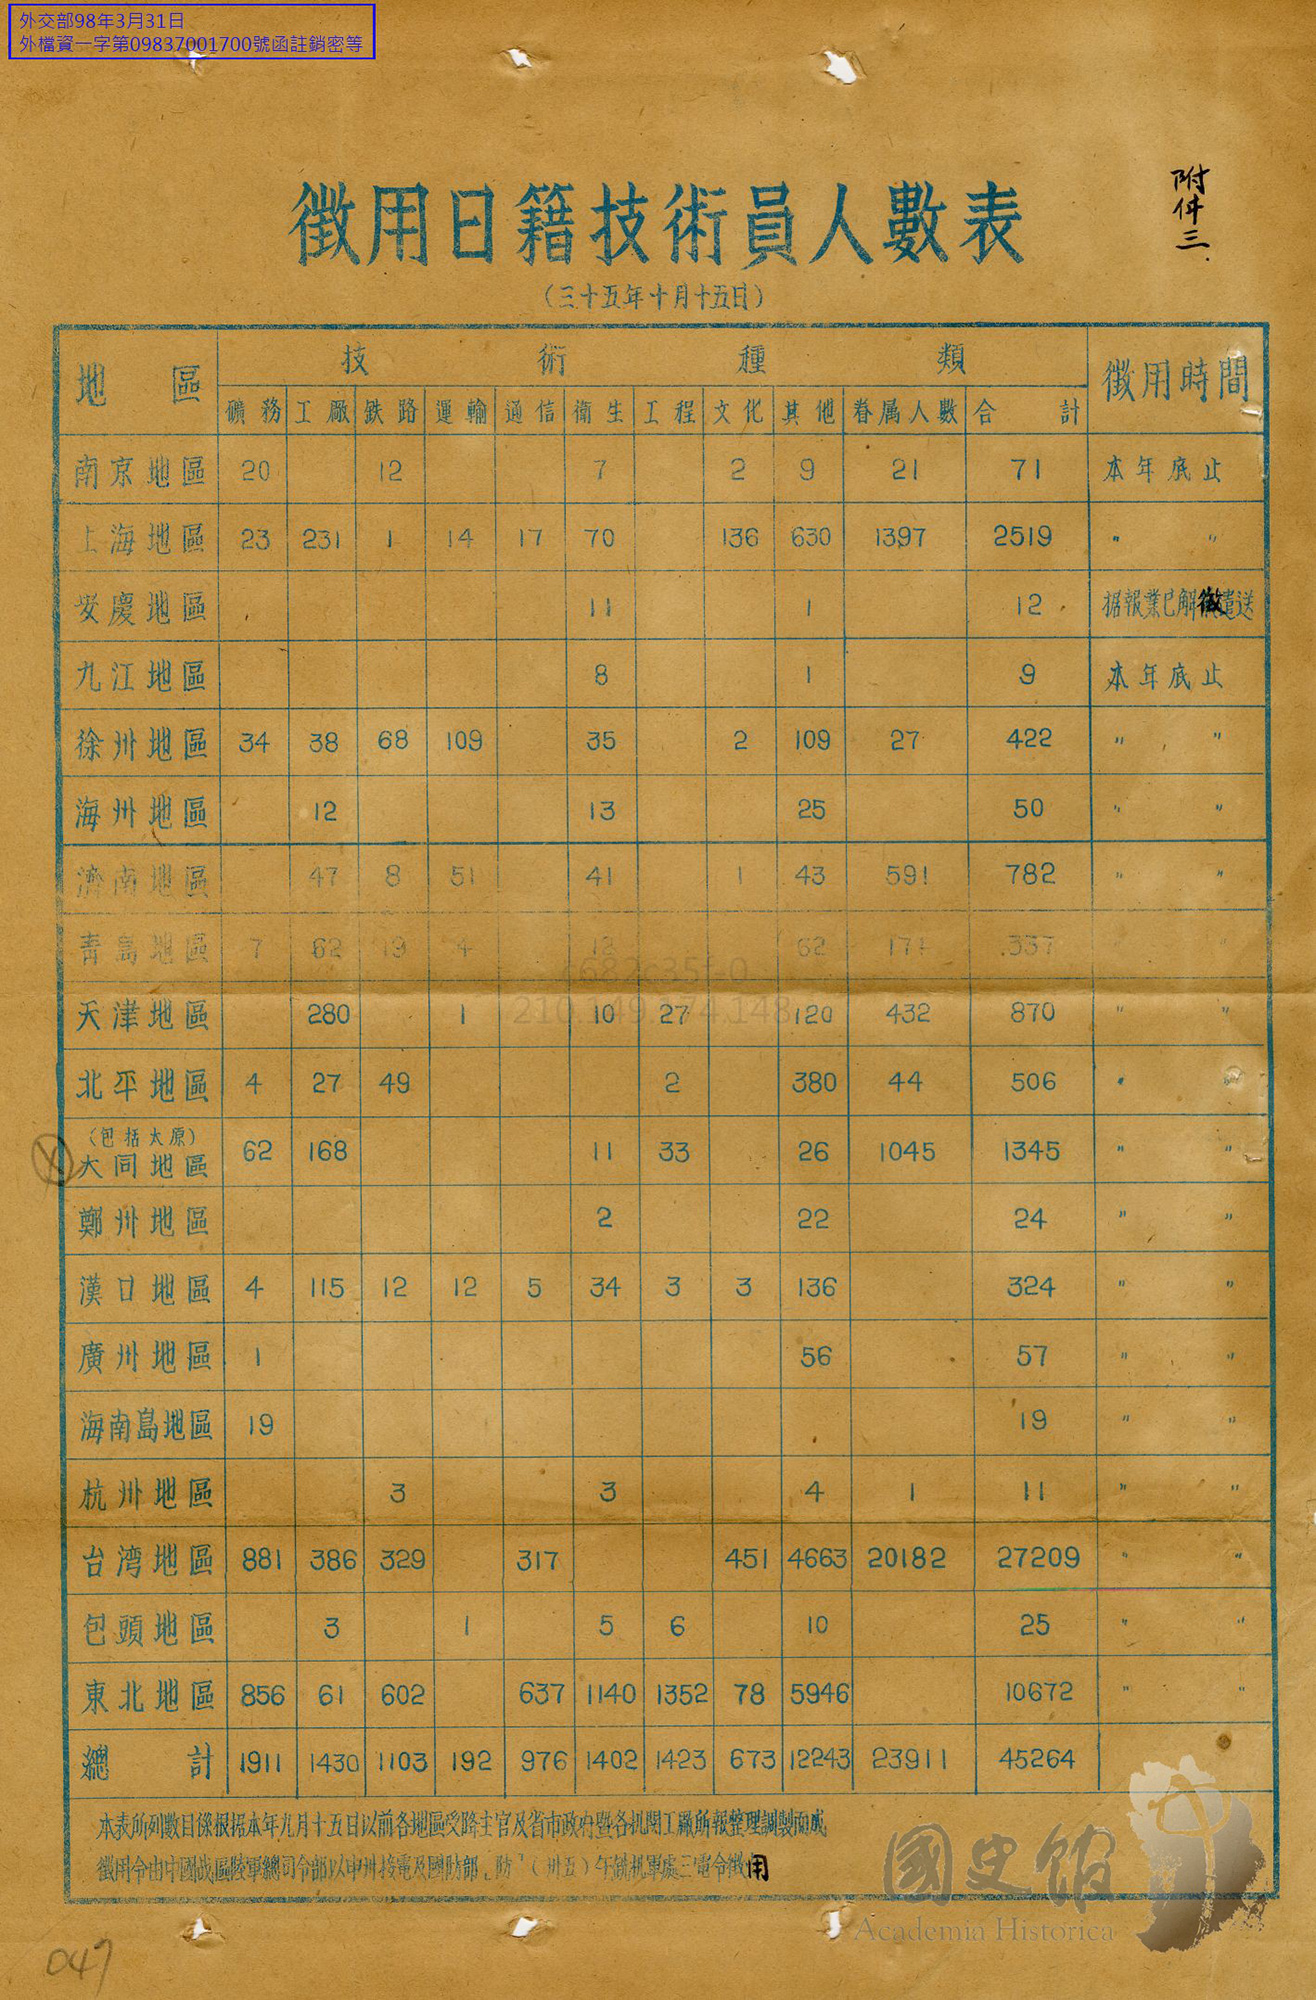 外交部98年3月31日
外檔資一字第09837001700號函註銷密等
附件三
徵用日籍技術員人數表
(三十五年十月十五日)
地區 技術種類 徵用時間
礦務 工廠 鉄路 運輸 通信 衛生 工程 文化 其他 眷属人數 合計
南京地區 20 12 7 2 9 21 71 本年底止
上海地區 23 231 1 14 17 70 136 630 1397 2519 〃 〃
安慶地區 11 1 12 据報業已解徵遣送
九江地區 8 1 9 本年底止
徐州地區 34 38 68 109 35 2 109 27 422 〃 〃
海州地區 12 13 25 50 〃 〃
濟南地區 47 8 51 41 1 43 591 782 〃 〃
青島地區 7 62 19 4 12 62 171 337 〃
天津地區 280 1 10 27 120 432 870 〃 〃
北平地區 4 27 49 2 380 44 506 〃 〃
(包括太原)
大同地區 62 168 11 33 26 1045 1345 〃 〃
鄭州地區 2 22 24 〃 〃
漢口地區 4 115 12 12 5 34 3 3 136 324 〃 〃
廣州地區 1 56 57 〃 〃
海南島地區 19 19 〃 〃
杭州地區 3 3 4 1 11 〃 〃
台湾地區 881 386 329 317 451 4663 20182 27209 〃 〃
包頭地區 3 1 5 6 10 25 〃 〃
東北地區 856 61 602 637 1140 1352 78 5946 10672 〃 〃
總計 1911 1430 1103 192 976 1402 1423 673 12243 23911 45264
本表所列數目係根据本年九月十五日以前各地區受降主官及省市政府暨各机関工廠所報整理調製而成
徵用令由中國战區陸軍總司令部以中州接電及國防部 防 (卅五)午 机軍處三電令徵用
c682c35f-0
210.149.274.148
國史館
Academia Historica
047